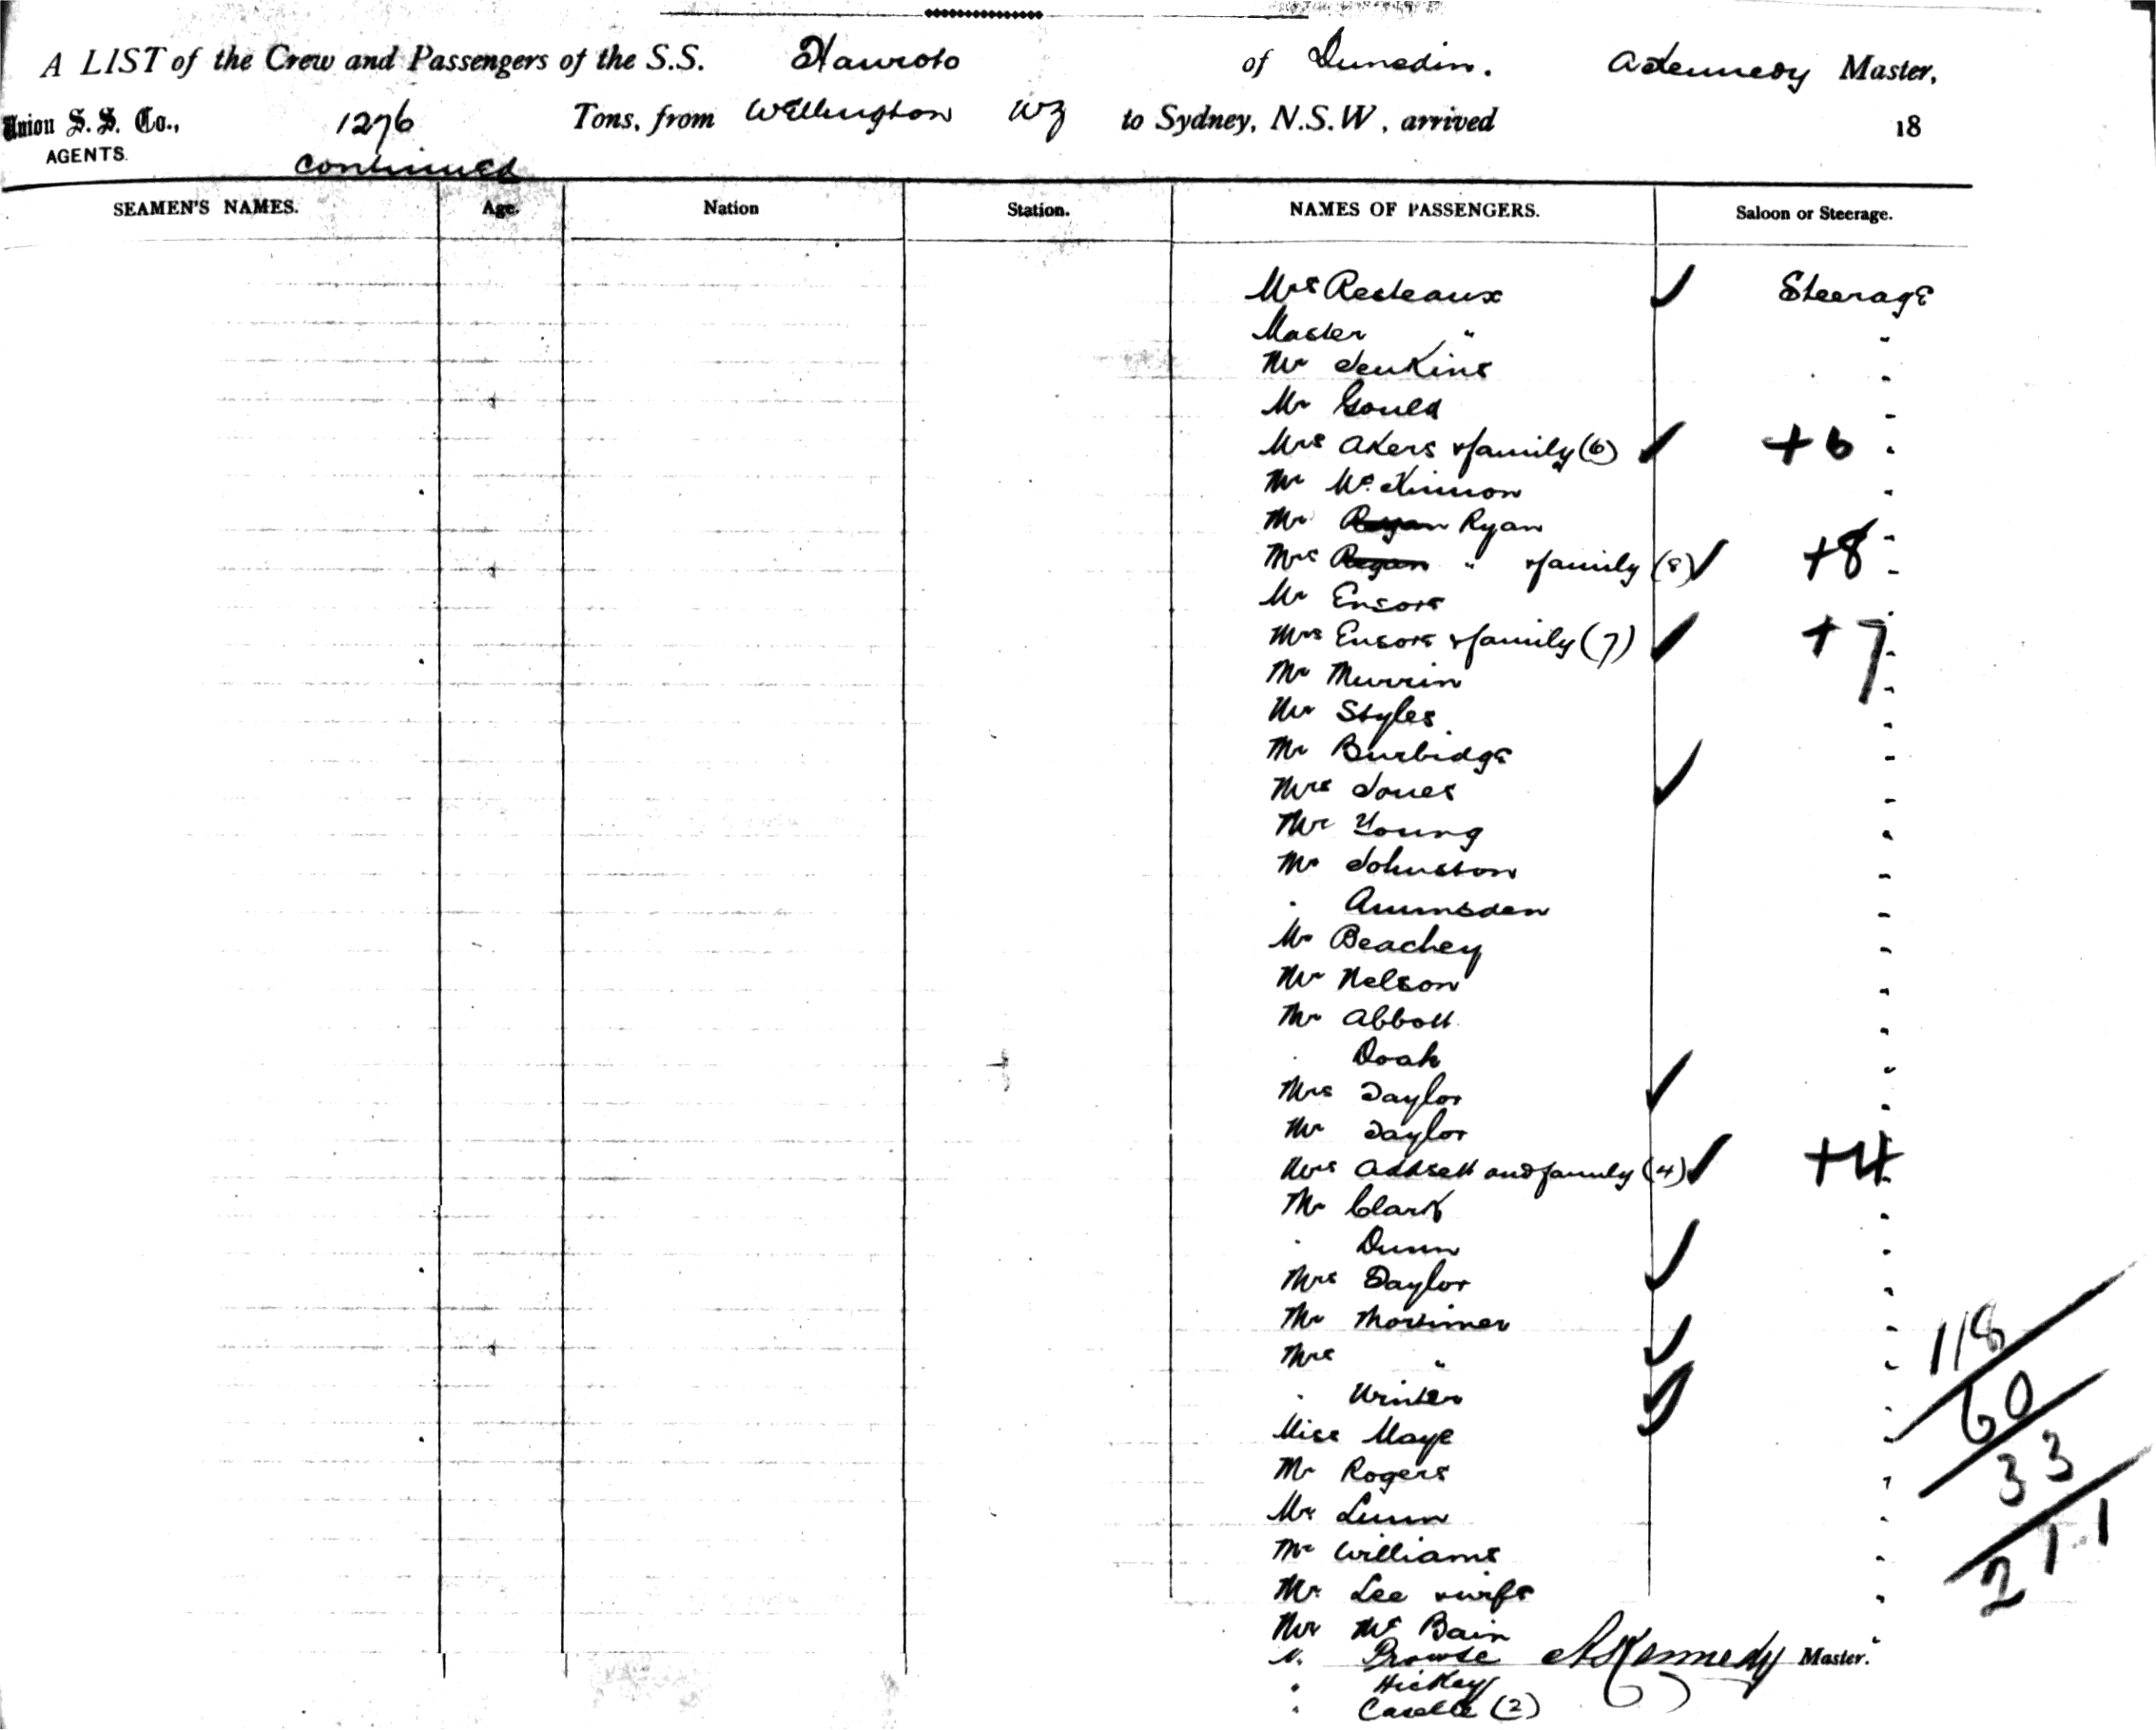 A LIST of the Crew and Passengers of the S.S. Hauroto of Dunedin. A Kennedy Master,
Union S. S. Co., 1276 Tons, from Wellington NZ to Sydney, N.S.W, arrived 18
AGENTS.
continued
SEAMEN'S NAMES. Age. Nation Station. NAMES OF PASSENGERS. Saloon or Steerage.
Mrs Resteaux ✓ Steerage
Master " "
Mr Jenkins "
Mr Gould "
Mrs Akers & family (6) ✓ +6 "
Mr McKinnon "
Mr Regan Ryan "
Mrs Regan " & family (8) ✓ +8 "
Mr Ensors "
Mrs Ensors & family (7) ✓ +7 "
Mr Murrin "
Mr Styles "
Mr Burbidge "
Mrs Jones ✓ "
Mr Young "
Mr Johnston "
" "
Mr Beachey "
Mr Nelson "
Mr Abbott "
" Doak "
Mrs Taylor ✓ "
Mr Taylor "
Mrs Adhsett and family (4) ✓ +4 "
Mr Clark "
" Dunn "
Mrs Taylor ✓ "
Mr Mortimer "
Mrs " ✓ "
" Winter ✓ "
Miss Maye ✓ "
Mr Rogers "
Mr Lunn "
Mr Williams "
Mr Lee & wife "
Mr McBain "
". Prowse A Kennedy Master.
" Hickey
" Caselle (2)
118
60
33
211